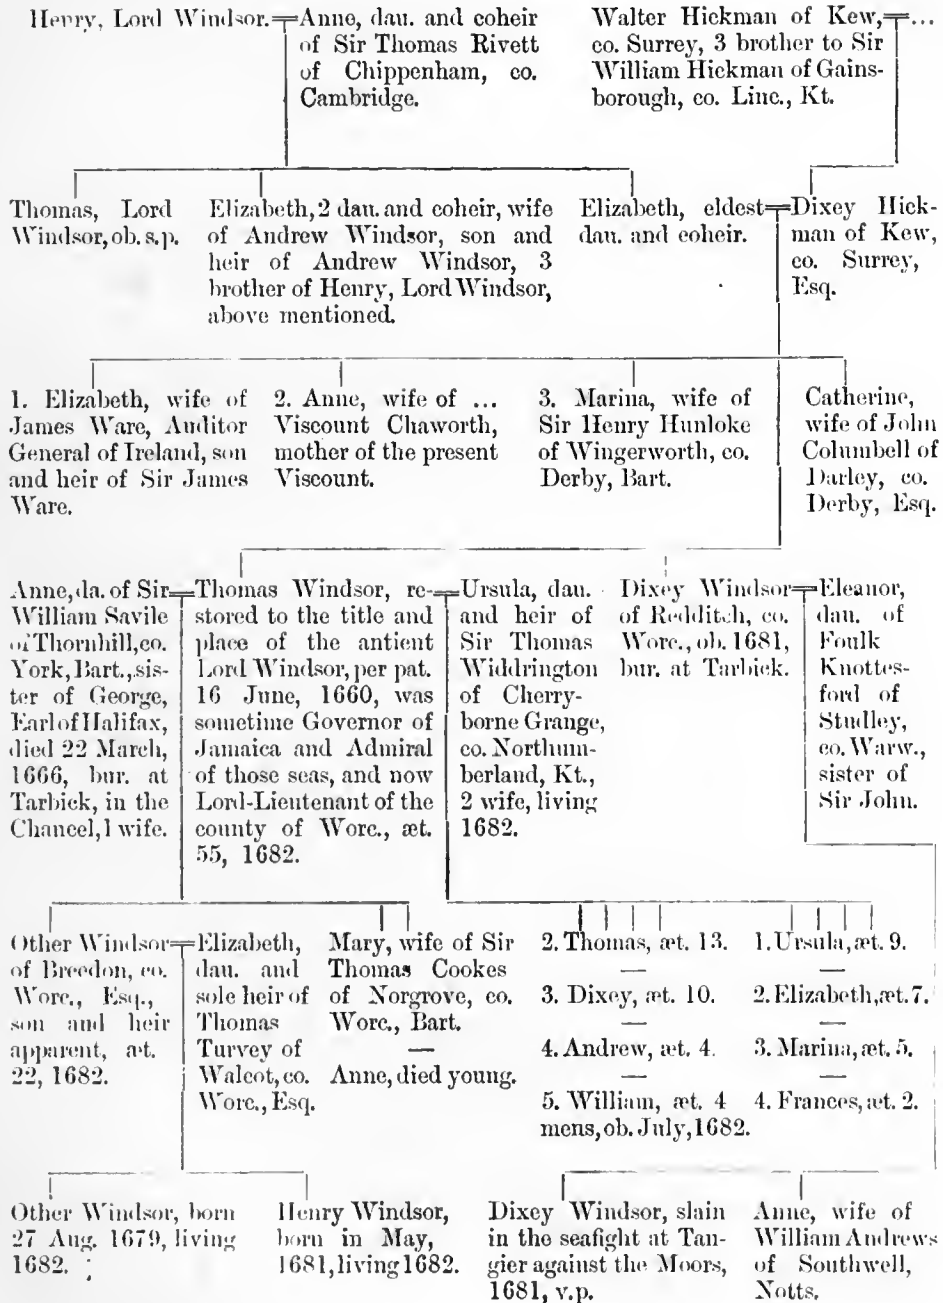 Henry, Lord Windsor.
Anne, dau. and coheir
of Sir Thomas Rivett
of Chippenham, co.
Cambridge.
Walter Hickman of Kew,
co. Surrey, 3 brother to Sir
William Hickman of Gains-
borough, co. Linc., Kt.
...
Thomas, Lord
Windsor, ob. s.p.
Elizabeth, 2 dau. and coheir, wife
of Andrew Windsor, son and
heir of Andrew Windsor, 3
brother of Henry, Lord Windsor,
above mentioned.
Elizabeth, eldest
dau. and coheir.
Dixey Hick-
man of Kew,
co. Surrey,
Esq.
1. Elizabeth, wife of
James Ware, Auditor
General of Ireland, son
and heir of Sir James
Ware.
2. Anne, wife of ...
Viscount Chaworth,
mother of the present
Viscount.
3. Marina, wife of
Sir Henry Hunloke
of Wingerworth, co.
Derby, Bart.
Catherine,
wife of John
Columbell of
Darley, co.
Derby, Esq.
Anne, da. of Sir
William Savile
of Thornhill, co.
York, Bart., sis-
ter of George,
Earl of Halifax,
died 22 March,
1666, bur. at
Tarbick, in the
Chancel, 1 wife.
Thomas Windsor, re-
stored to the title and
place of the antient
Lord Windsor, per pat.
16 June, 1660, was
sometime Governor of
Jamaica and Admiral
of those seas, and now
Lord-Lieutenant of the
county of Worc., æt.
55, 1682.
Ursula, dau.
and heir of
Sir Thomas
Widdrington
of Cherry-
borne Grange,
co. Northum-
berland, Kt.,
2 wife, living
1682.
Dixey Windsor
of Redditch, co.
Worc., ob. 1681,
bur. at Tarbick.
Eleanor,
dau. of
Foulk
Knottes-
ford of
Studley,
co. Warw.,
sister of
Sir John.
Other Windsor
of Breedon, co.
Worc., Esq.,
son and heir
apparent, æt.
22, 1682.
Elizabeth,
dau. and
sole heir of
Thomas
Turvey of
Walcot, co.
Worc., Esq.
Mary, wife of Sir
Thomas Cookes
of Norgrove, co.
Worc., Bart.
—
Anne, died young.
2. Thomas, æt. 13.
—
3. Dixey, æt. 10.
—
4. Andrew, æt. 4.
—
5. William, æt. 4
mens, ob. July, 1682.
1. Ursula, æt. 9.
—
2. Elizabeth, æt. 7.
—
3. Marina, æt. 5.
—
4. Frances, æt. 2.
Other Windsor, born
27 Aug. 1679, living
1682.
Henry Windsor,
born in May,
1681, living 1682.
Dixey Windsor, slain
in the seafight at Tan-
gier against the Moors,
1681, v.p.
Anne, wife of
William Andrews
of Southwell,
Notts.